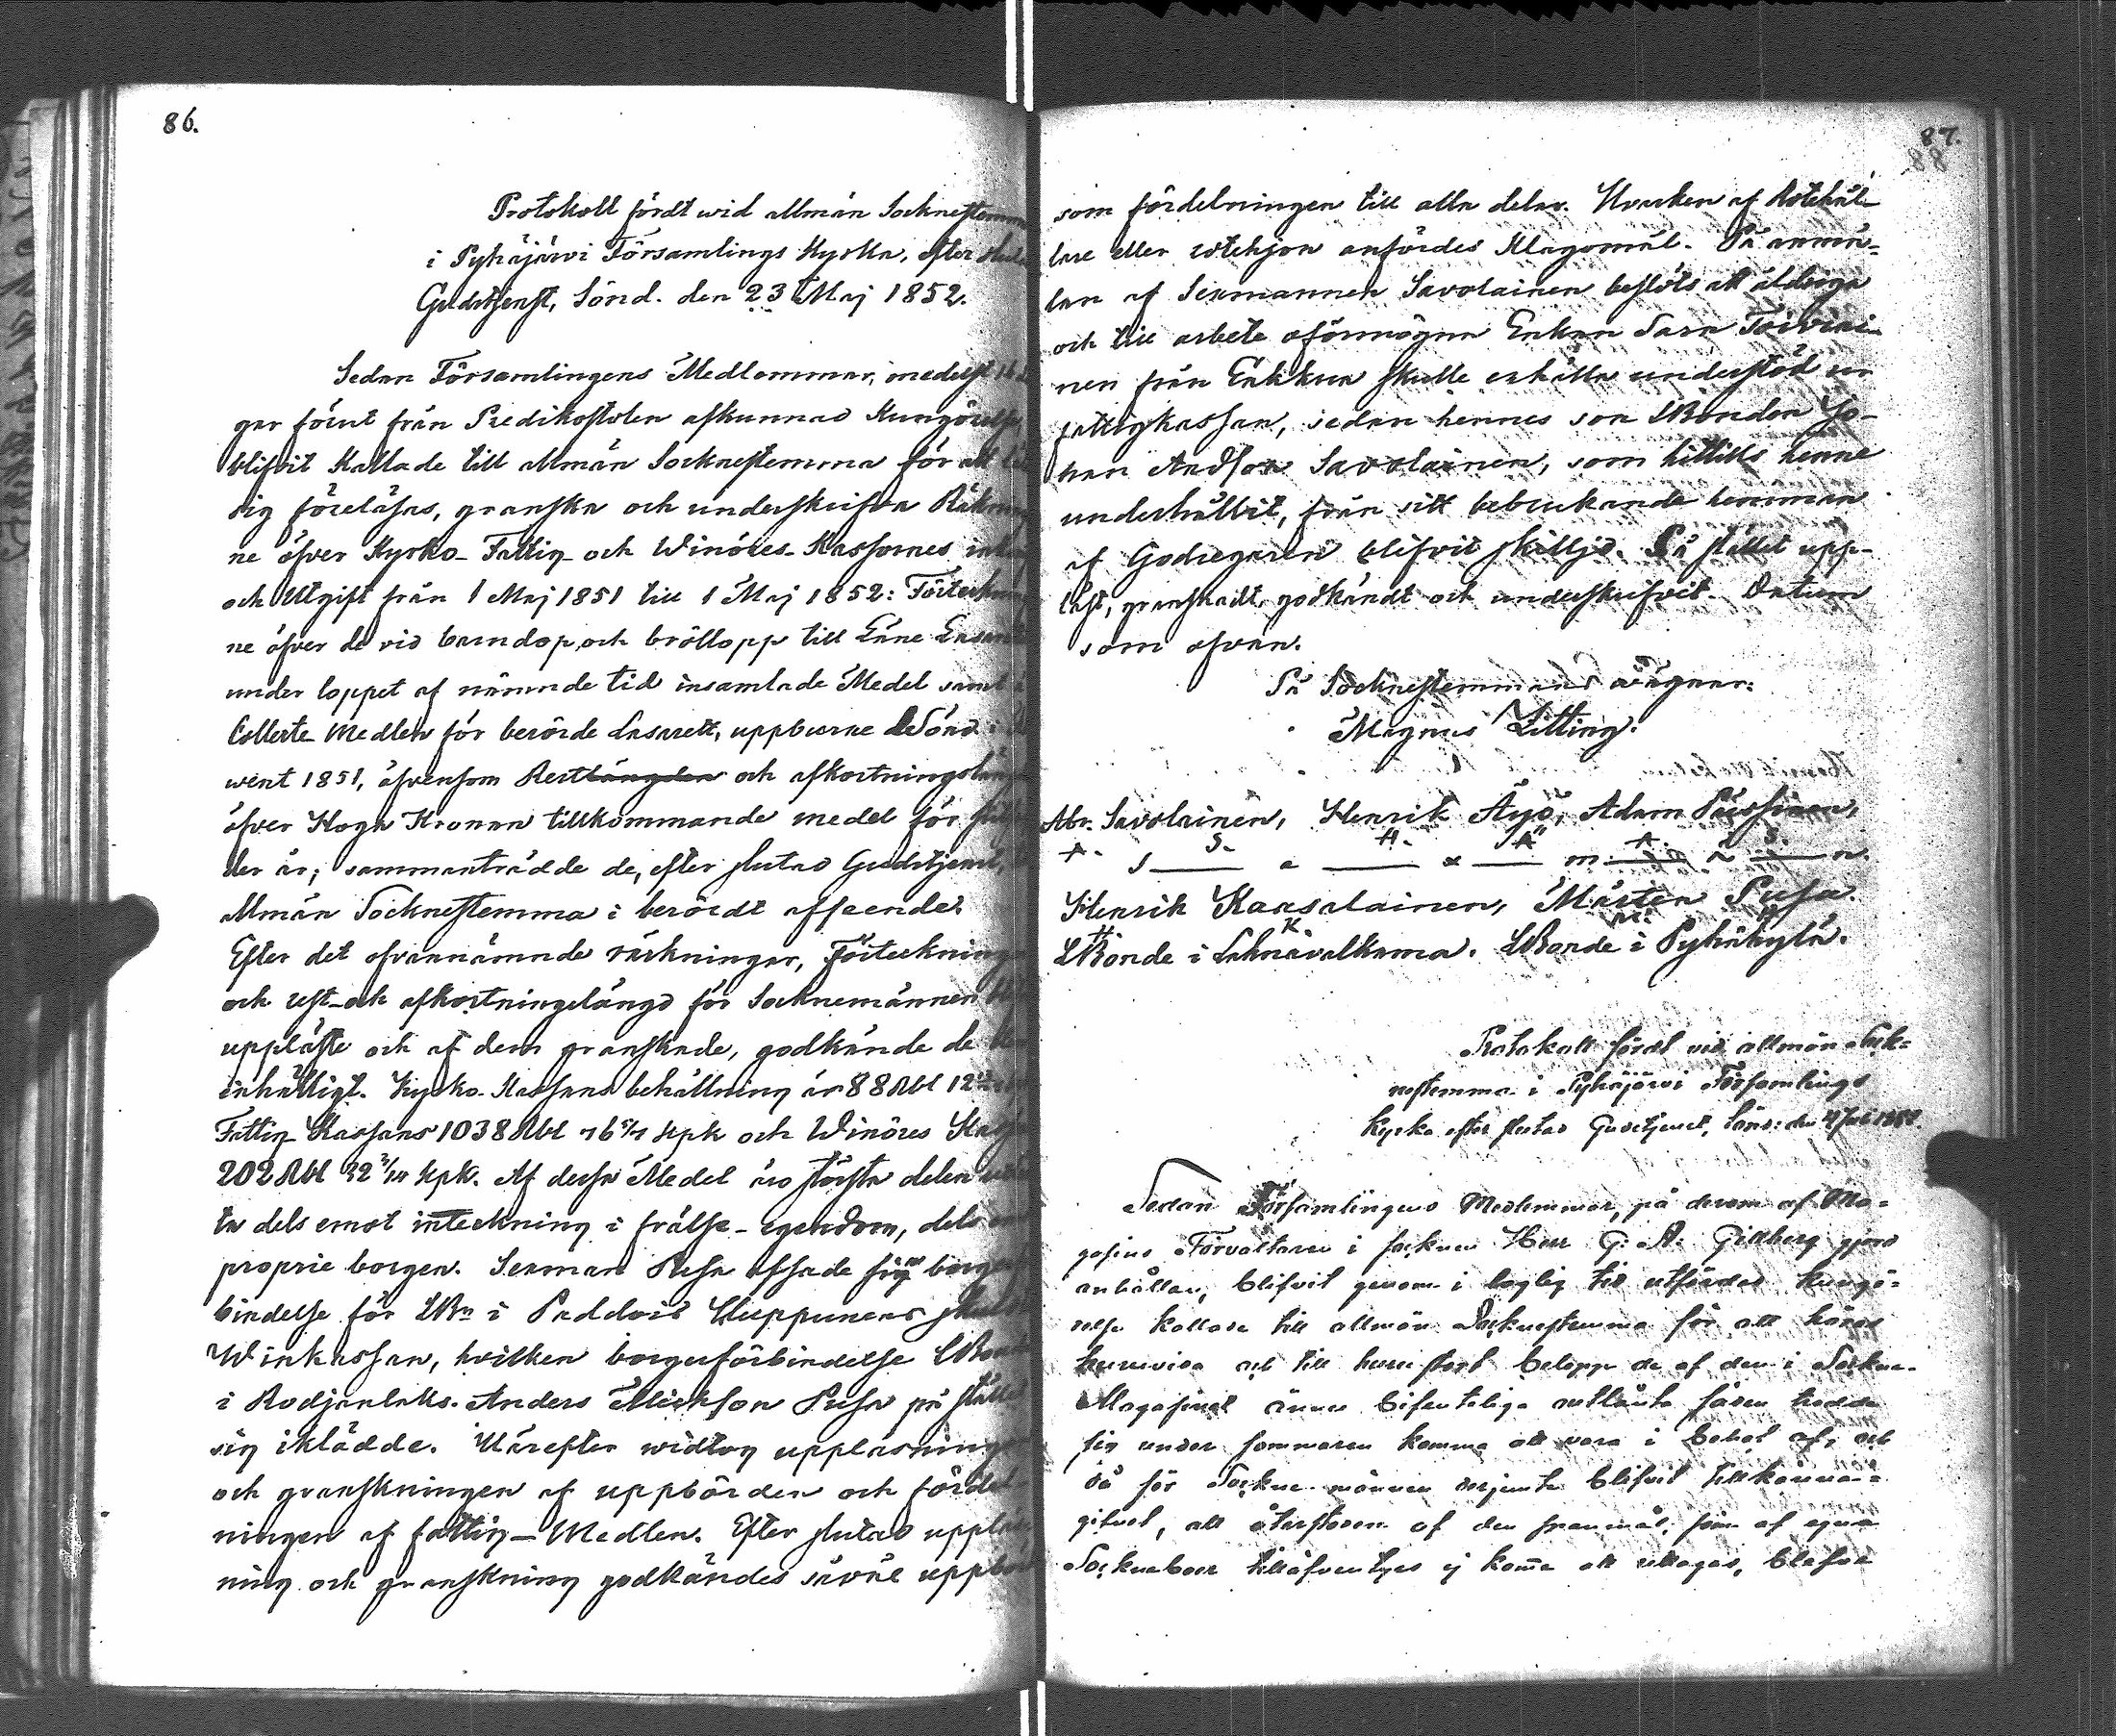 86.
Protokoll fördt wid allmän Socknestemma
i Pyhäjärvi Församlings Kyrka, efter
Gudstjenst, Sönd. den 23 Maj 1852.
Sedan Församlingens Medlemmar, medelst
gor förut från Predikostolen afkunnad Kungörelse,
blifvit Kallade till allmän Socknestemma för att
sig föreläsas, granska och underskrifva
ne öfver Kyrko- Fattig- och Winöres-Kassornes
och Utgift från 1 Maj 1851 till 1 Maj 1852:
ne öfver de vid barndop, och bröllopp till Läne
under loppet af nämnde tid insamlade Medel samt
Collecte Medlen för berörde Lasarett, uppburne
vent 1851, äfvensom Restlängden och
öfver Höga Kronan tillkommande medel för
der år; sammanträdde de, efter slutad Gudstjenst,
allmän Socknestemma i berördt afseende.
Efter det ofvannämnde räkningar,
och rest- och afkortningslängd för Socknemännen
uppläste och af dem granskade, godkände de
enhälligt. Kyrko-Kassans behållning är 88 Rbl
Fattig-Kassans 1038 Rbl 76 5/7 Kpk och Winöres
202 Rbl 32 Kpk. Af dessa Medel äro största delen
te dels emot inteckning i frälse-egendom, dels
proprie borgen. Sexman Pusa afsade sig
bindelse för LBn i Paddois Huppunens
Winkassan, hvilken borgesförbindelse
i Rodjanlaks. Anders Mickson Pusa på
sig iklädde. Härefter widtog
och granskningen af uppbörden och
ningen af fattig-Medlen. Efter slutad
ning och granskning godkändes såväl
87.
som fördelningen till alla delar. Hvarken af Rotehål-
lare eller rotehjon anfördes Klagomål. På anmä-
lan af Sexmannen Savolainen beslöts att ålderige
och till arbete oförmögna Enkan Sara Toivai-
nen från Enkkua skulle erhålla understöd ur
fattigkassan, sedan hennes son LBonden Jo-
han Andson Savolainen, som hittills henne
underhållit, från sitt bebrukande hemman
af Godsegaren blifvit skilljd. På stället upp-
läst, granskadt, godkändt och underskrifvit. Datum
som ofvan.
På Sockenstemmans vägnar:
Magnus Litting.
Abr. Savolainen, Henrik Äyö, Adam Pässinen,
A. S. H. Ä A. S.
s e x m ä n.
Henrik Kaasalainen, Mårten Pusa.
H K M. P
LBonde i Lahnavalkama. LBonde i Pyhäkylä.
Protokoll fördt vid allmän Sock-
nestemma i Pyhäjärvi Församlings
Kyrka efter slutad Gudstjenst, Sönd: den 4 Juli 1852.
Sedan Församlingens Medlemmar, på derom af Ma-
gasins Förvaltaren i socknen Herr G: A: Gillberg gjord
anhållan, blifvit genom i laglig tid utfärdad kungö-
relse kallade till allmän Socknestemma för att höras
huruvida och till huru stort belopp de af den i Sockne-
Magasinet ännu befinteliga outlånta säden trodde
sig under sommaren komma att vara i behof af, och
då för Socknemännen derjemte blifvit tillkänna-
gifvet, att återstoden af den spanmål, som af egna
Sockneboer tilläfventyrs ej kom̄e att uttagas, blefve